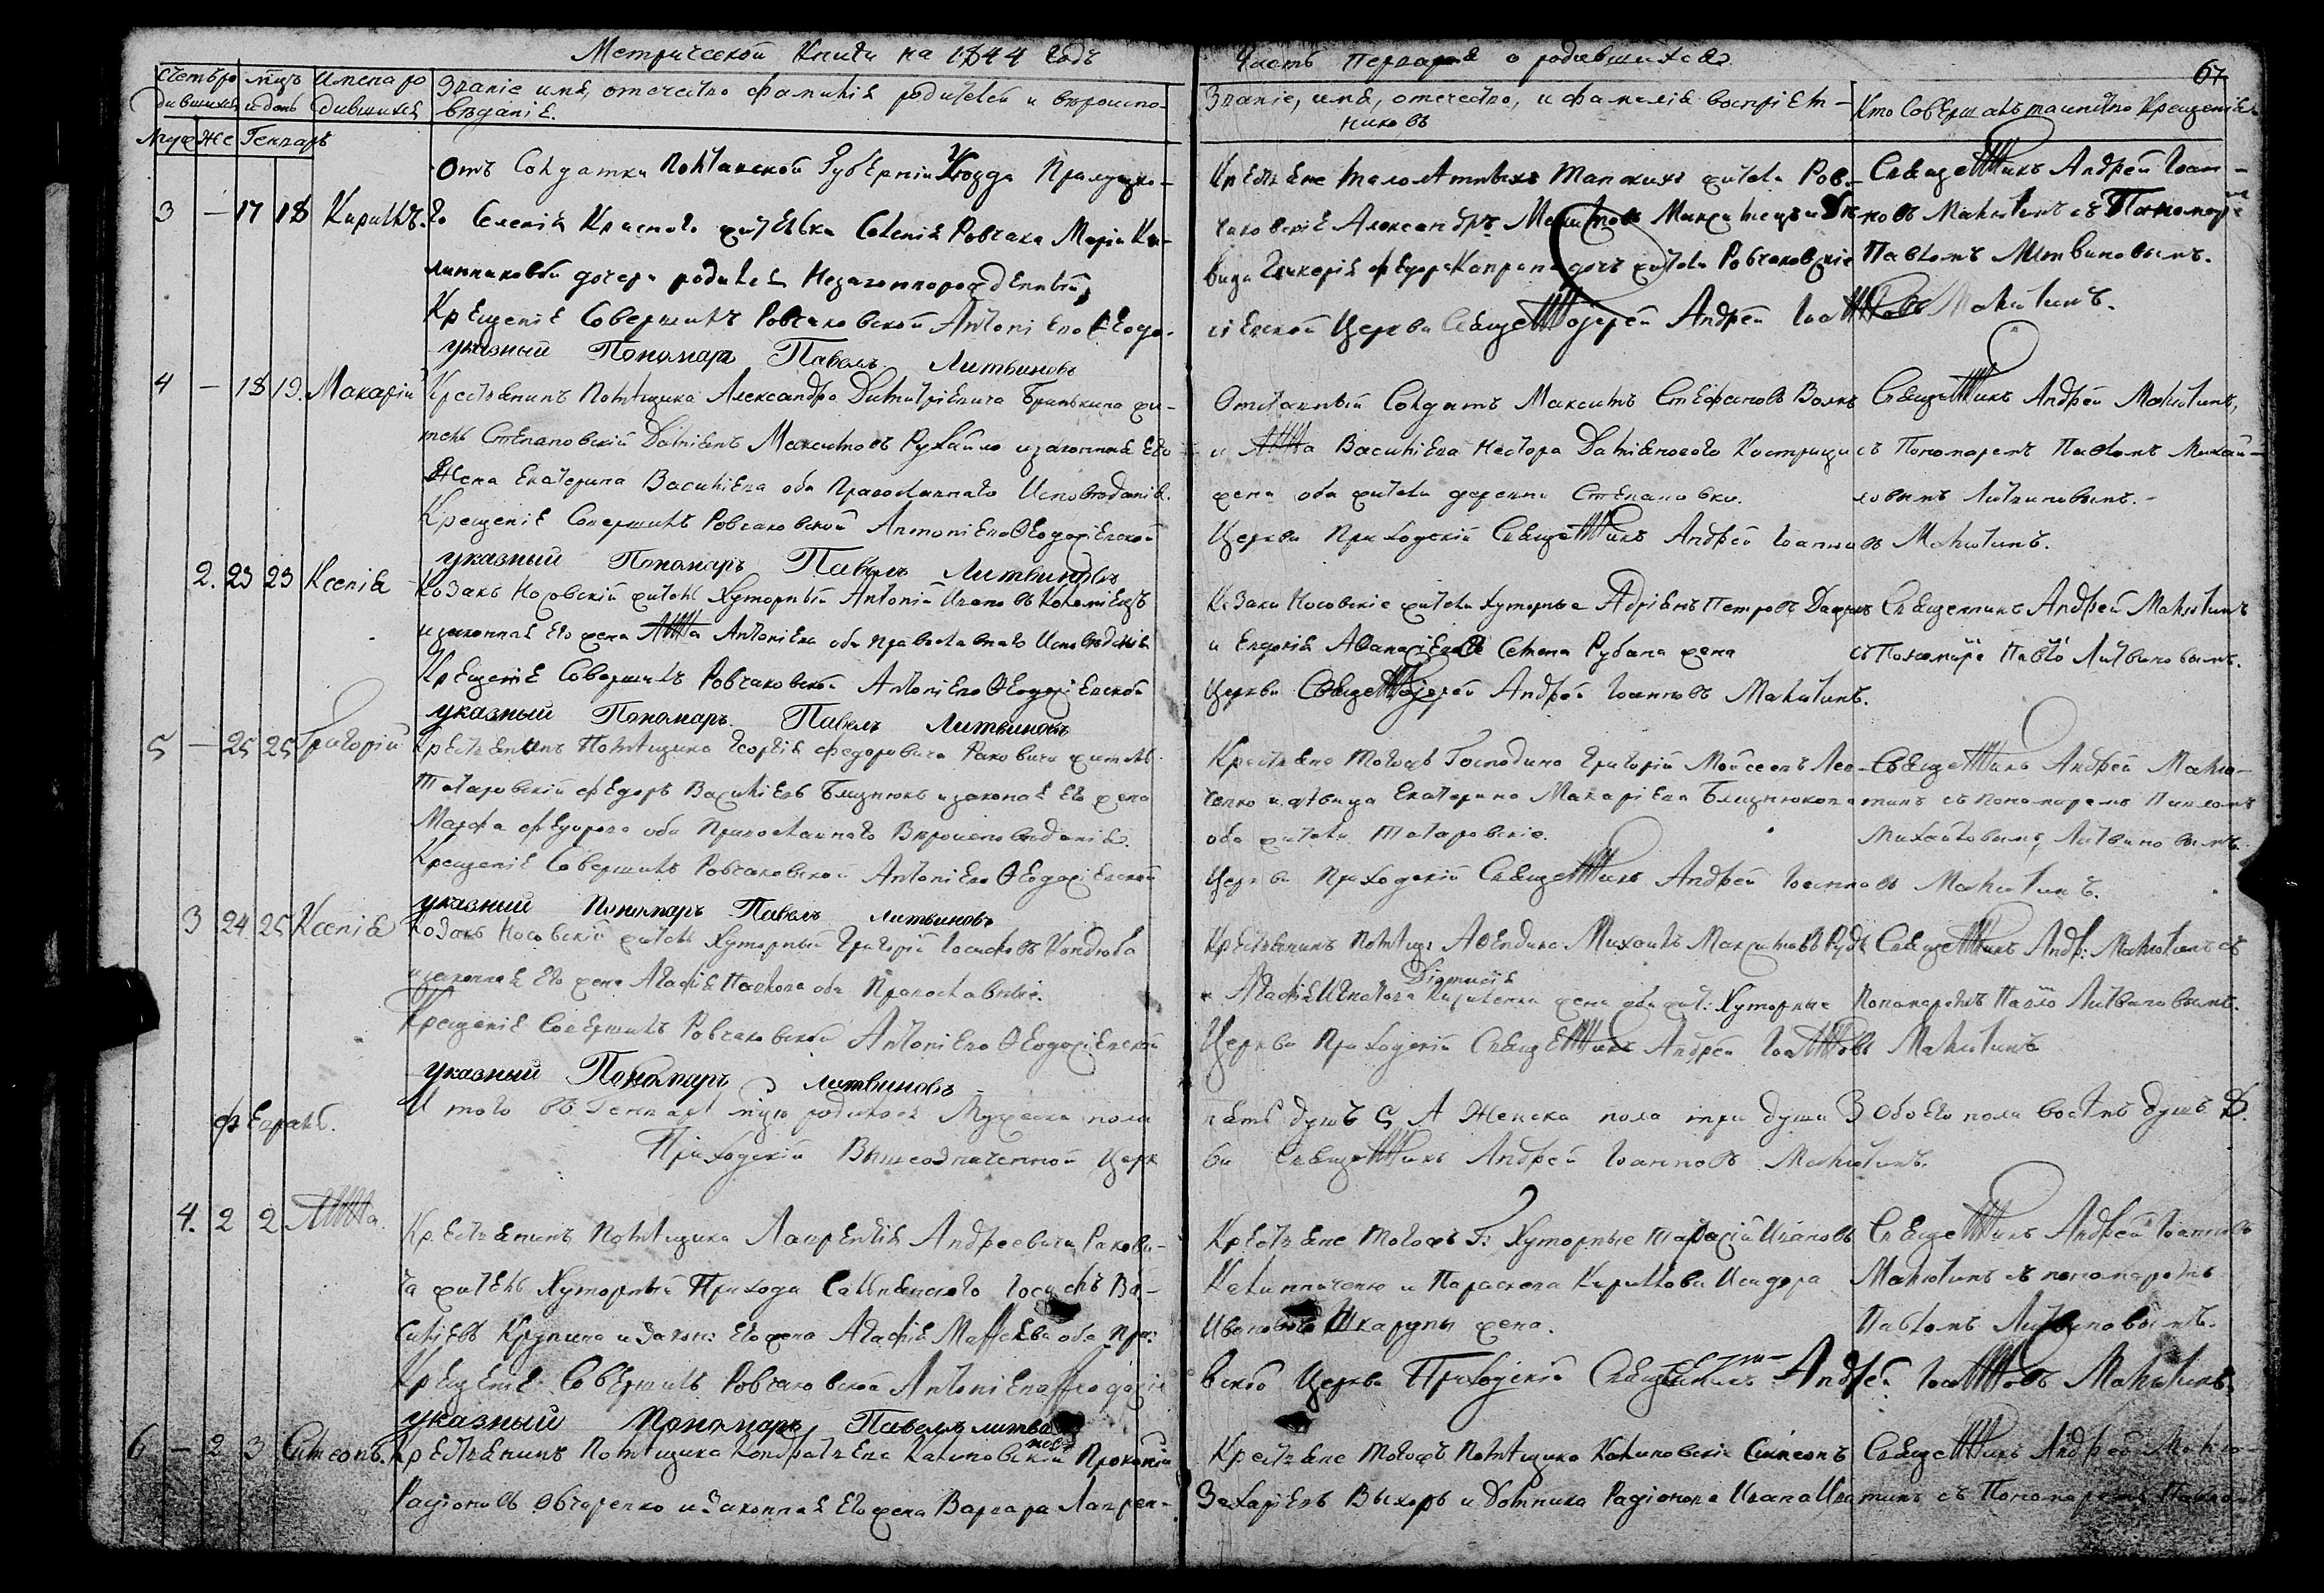 Метрической Книги на 1844 Годъ
Часть Перьвая о родившихся
67
Счетъ родившихся
мцъ и день
Имена родившихся
Званіе имя, отчество фамилія родителей и вѣроисповѣданіе.
Званіе, имя, отчество, и фамилія воспріемниковъ
Кто Совершалъ таинство Крещенія
Муж Же Генваръ
Отъ Солдатки Полтавской Губерніи Уѣзда Прилуцко-
3 — 17 18 Кириллъ.
го Селенія Красного жителька Селенія Ровчака Марія Ка-
линниковой дочери родился Незаконнорожденный,
Крещеніе Совершилъ Ровчаковской Антоніево Ѳеодо-
указный Пономарь Павелъ Литвиновъ
Крестьяне жители Ров-
чаковскіе Александръ
Гликерія жители Ровчаковскіе
сіевской Церкви Андрей Іоанновъ Малютинъ.
Священникъ Андрей Іоан-
новъ Малютинъ съ Пономаре
Павломъ Литвиновымъ.
4 — 18 19. Макарій
Крестьянинъ Помѣщика Александра Дмитріевича жи-
тель Степановскій Даміянъ Максимовъ и законная Его
Жена Екатерина Василіева оба Православнаго Исповѣданія.
Крещеніе Совершилъ Ровчаковской Антоніево Ѳеодосіевской
указный Пономаръ Павелъ Литвиновъ
Отставный Солдатъ Максимъ Стефановъ Волкъ
и Анна Василіева Нестора Даміянового
жена оба жители деревни Степановки.
Церкви Приходскій Священникъ Андрей Іоанновъ Малютинъ.
Священникъ Андрей Малютинъ,
съ Пономаремъ Павломъ Михай-
ловымъ Литвиновымъ.
2. 23 23 Ксенія
Козакъ Носовскій житель Хуторный Антоній Ивановъ Коломіецъ
и законная Его жена Анна Антоніева оба Православнаго Исповѣданія
Крещеніе Совершилъ Ровчаковской Антоніево Ѳеодосіевской
указный Пономаръ Павелъ Литвиновъ
Козаки Носовскіе жители Хуторные Адріянъ Петровъ
и Евдокія Аѳанасіева Семена Рубана жена
Церкви Андрей Іоанновъ Малютинъ.
Священникъ Андрей Малютинъ
съ Пономаре Павло Литвиновымъ.
5 — 25 25 Григорій
Крестьянинъ Помѣщика Георгія Федоровича Раковича житель
Татаровскій Федоръ Василіевъ Близнюкъ и законая Его жена
Марфа Федорова оба Православнаго Вѣроисповѣданія.
Крещеніе Совершилъ Ровчаковской Антоніево Ѳеодосіевской
указний Пономаръ Павелъ Литвиновъ
Крестьяне тогожъ Господина Григорій Мойсеевъ Лео-
и дѣвица Екатерина Макаріева Близнюкова
оба жители Татаровскіе.
Церкви Приходскій Священникъ Андрей Іоанновъ Малютинъ.
Священникъ Андрей Малю-
тинъ съ Пономаремъ Павломъ
Михайловымъ, Литвиновымъ.
3 24 25 Ксенія
Козакъ Носовскій житель Хуторный Григорій Іосифовъ
и законная Его жена Агафія Павлова оба Православные.
Крещеніе Совершилъ Ровчаковской Антоніево Ѳеодосіевской
указный Пономаръ Литвиновъ
Крестьянинъ Помѣщ: Михаилъ Максимовъ
и Агафія Игнатова жена оба жит: Хуторные
Церкви Приходскій Священникъ Андрей Іоанновъ Малютинъ
Священникъ Андр: Малютинъ съ
Пономаремъ Павло Литвиновымъ.
И того въ Генварѣ мцѣ родилось Мужеска пола
пять душъ 5 А Женска пола три души 3 Обоего пола восемь душъ 8.
Февраль.
Приходскій Вышеозначенной Церк
ви Священникъ Андрей Іоанновъ Малютинъ.
4. 2 2 Анна.
Крестьянинъ Помѣщика Лаврентія Андреевича Ракови-
ча житель Хуторный Прихода Іосифъ Ва-
силіевъ Крупина и Закон: Его жена Агафія Матѳеева оба Пра:
Крещеніе Совершилъ Ровчаковской Антоніево Ѳеодосіе
указный Пономаръ Павелъ Литвиновъ
Крестьяне тогожъ Г: Хуторные Тарасій Ивановъ
Калинниченко и Параскева Кириллова Исидора
Иванового Шкарупы жена.
вской Церкви Приходскій Священникъ Андрей Іоанновъ Малютинъ.
Священникъ Андрей Іоанновъ
Малютинъ съ пономаромъ
Павломъ Литвиновымъ.
6 — 2 3 Симеонъ.
Крестьянинъ Помѣщика Кондратьева Калиновскій Прокопій
Радіоновъ Овчаренко и Законная Его жена Варвара Лаврен-
Крестьяне тогожъ Помѣщика Калиновскіе Симеонъ
Захаріевъ Выхоръ и Домника Радіонова Ивана
Священникъ Андрей Малю-
тинъ съ Пономаремъ Павлом